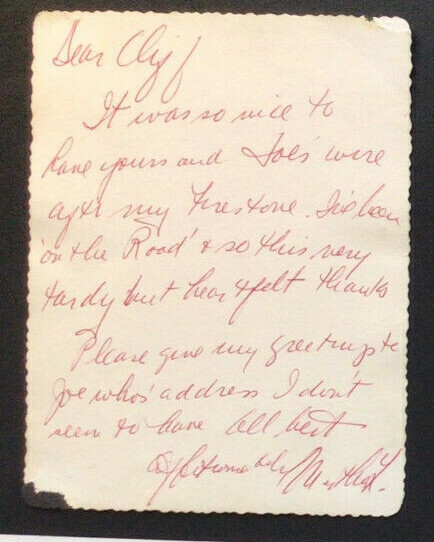 Dear Cliff
It was so nice to
have yours and Joe's wire
after my Firestone. I've been
'on the Road' & so this very
tardy but heartfelt thanks
Please give my greetings to
Joe who's address I don't
seem to have All best
Affectionately